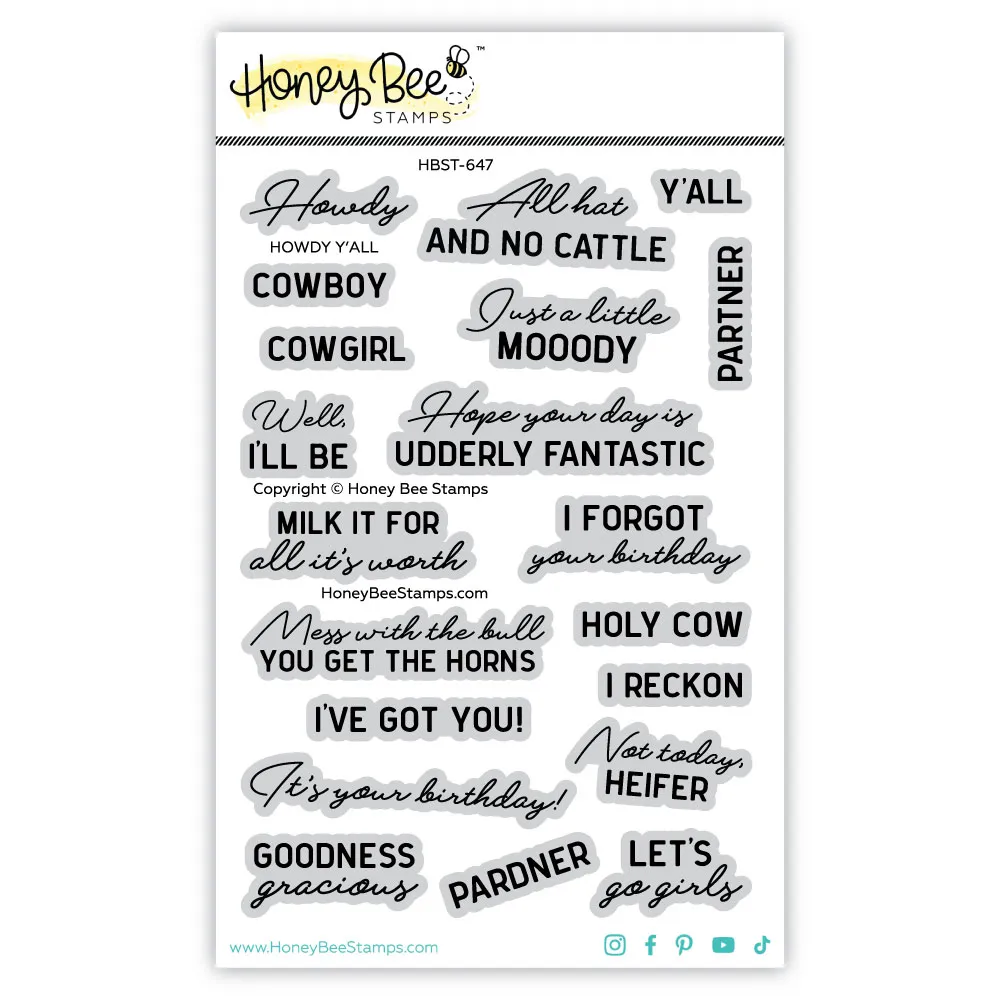 Honey Bee™
STAMPS
HBST-647
Howdy
HOWDY Y'ALL
COWBOY
COWGIRL
All hat
AND NO CATTLE
Y'ALL
PARTNER
Just a little
MOOODY
Well,
I'LL BE
Hope your day is
UDDERLY FANTASTIC
Copyright © Honey Bee Stamps
MILK IT FOR
all it's worth
I FORGOT
your birthday
HoneyBeeStamps.com
Mess with the bull
YOU GET THE HORNS
HOLY COW
I RECKON
I'VE GOT YOU!
Not today,
HEIFER
It's your birthday!
GOODNESS
gracious
PARDNER
LET'S
go girls
www.HoneyBeeStamps.com